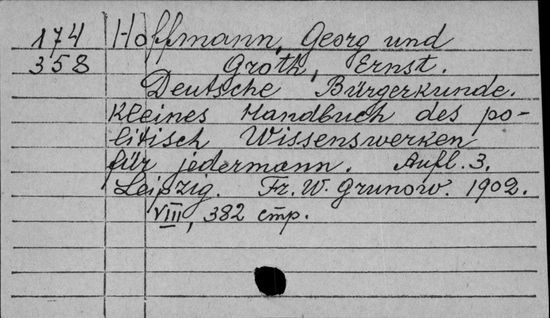 174 Hoffmann, Georg und
358 Groth, Ernst.
Deutsche Bürgerkunde.
Kleines Handbuch des po-
litisch Wissenswerken
für jedermann. Aufl. 3.
Leipzig. Fr. W. Grunow. 1902.
VIII, 382 стр.